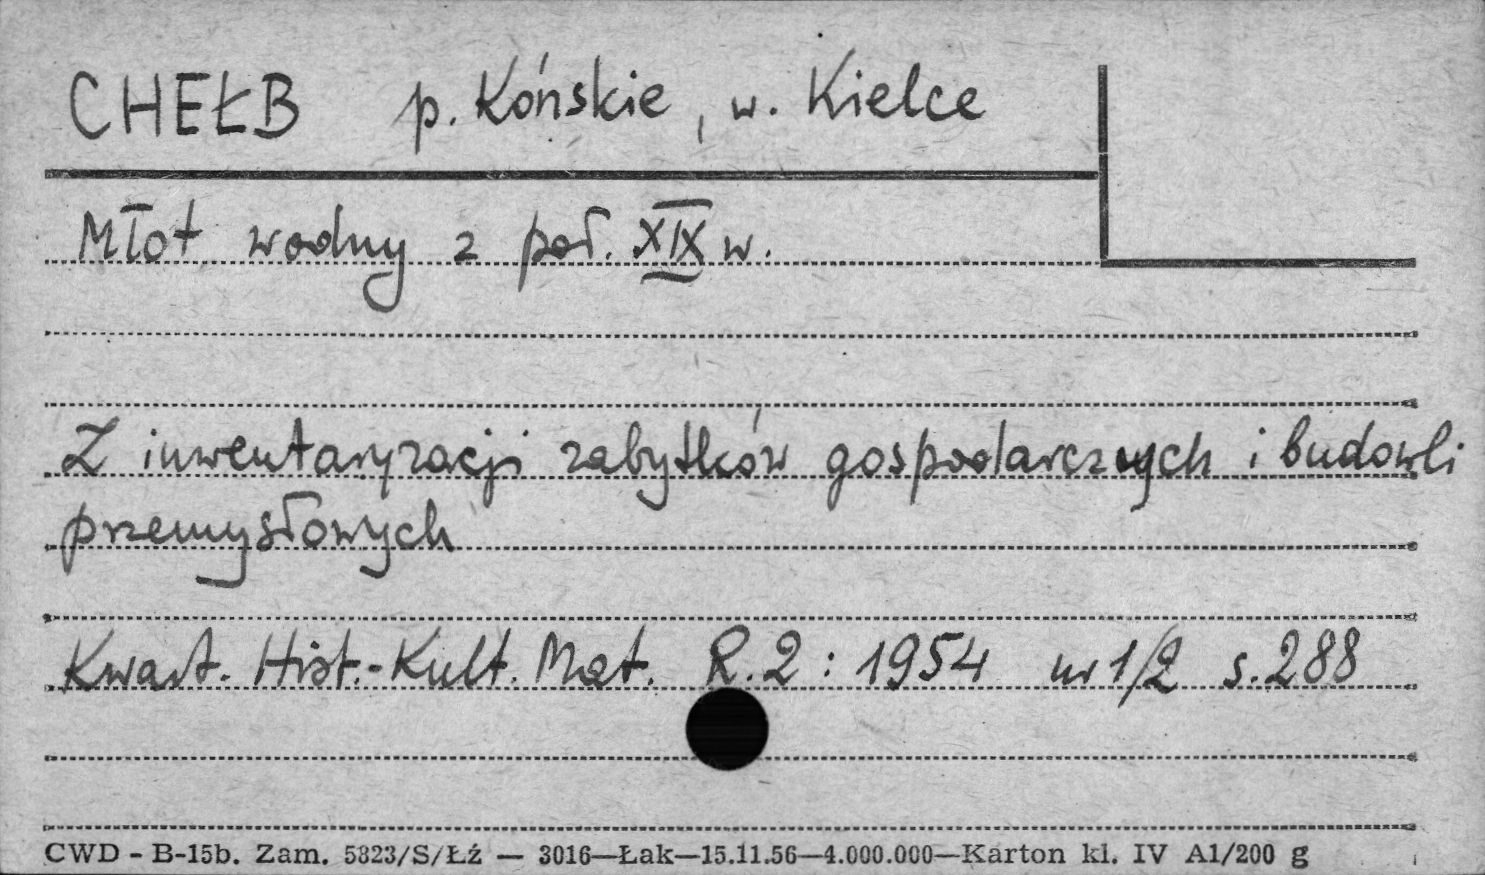 CHEŁB p. Końskie, w. Kielce
Młot wodny z poł. XIX w.
Z inwentaryzacji zabytków gospodarczych i budowli
przemysłowych
Kwart. Hist.-Kult. Mat. R.2: 1954 nr 1/2 s.288
CWD - B-15b. Zam. 5823/S/Łź — 3016—Łak—15.11.56—4.000.000—Karton kl. IV A1/200 g